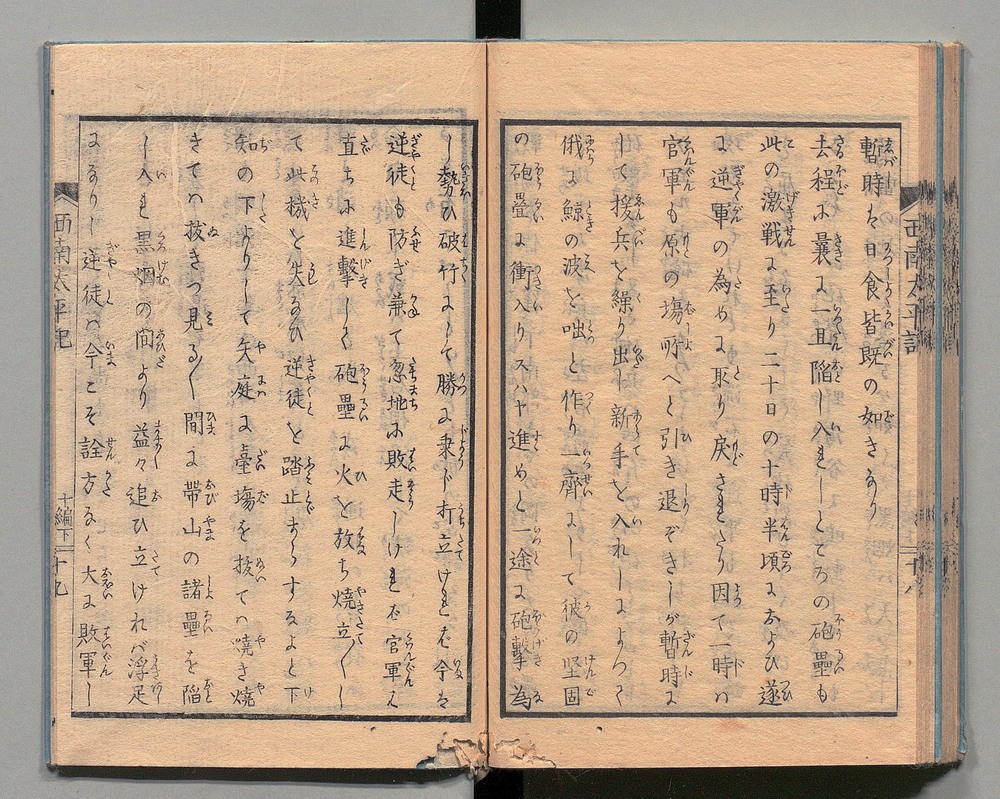 西南太平記
十八
暫時を日食皆既の如きなり
去程に曩に一且陥し入れしところの砲塁も
此の激戦に至り二十日の十時半頃におよひ遂
に逆軍の為めに取り戻されたり因て一時ハ
官軍も原の場所へと引き退ぞきしが暫時に
して援兵を繰り出し新手を入れしによつて
俄に鯨の波を咄と作り一齊にして彼の堅固
の砲疊に衝入りスハヤ進めと一途に砲撃為
し勢ひ破竹にして勝に乗じ打立けれむ今は
逆徒も防ぎ兼て忽地に敗走しけれむ官軍ハ
直ちに進撃しく砲壘に火を放ち焼立〳〵し
て此機を失なひ逆徒を踏止まらするよと下
知の下よりして矢庭に臺場を抜てハ焼き焼
きてハ抜きつ見る〳〵間に帯山の諸壘を陥
し入れ黒烟の間より益々追ひ立けれバ浮足
になりし逆徒ハ今こそ詮方なく大に敗軍し
西南太平記
十編下
十九